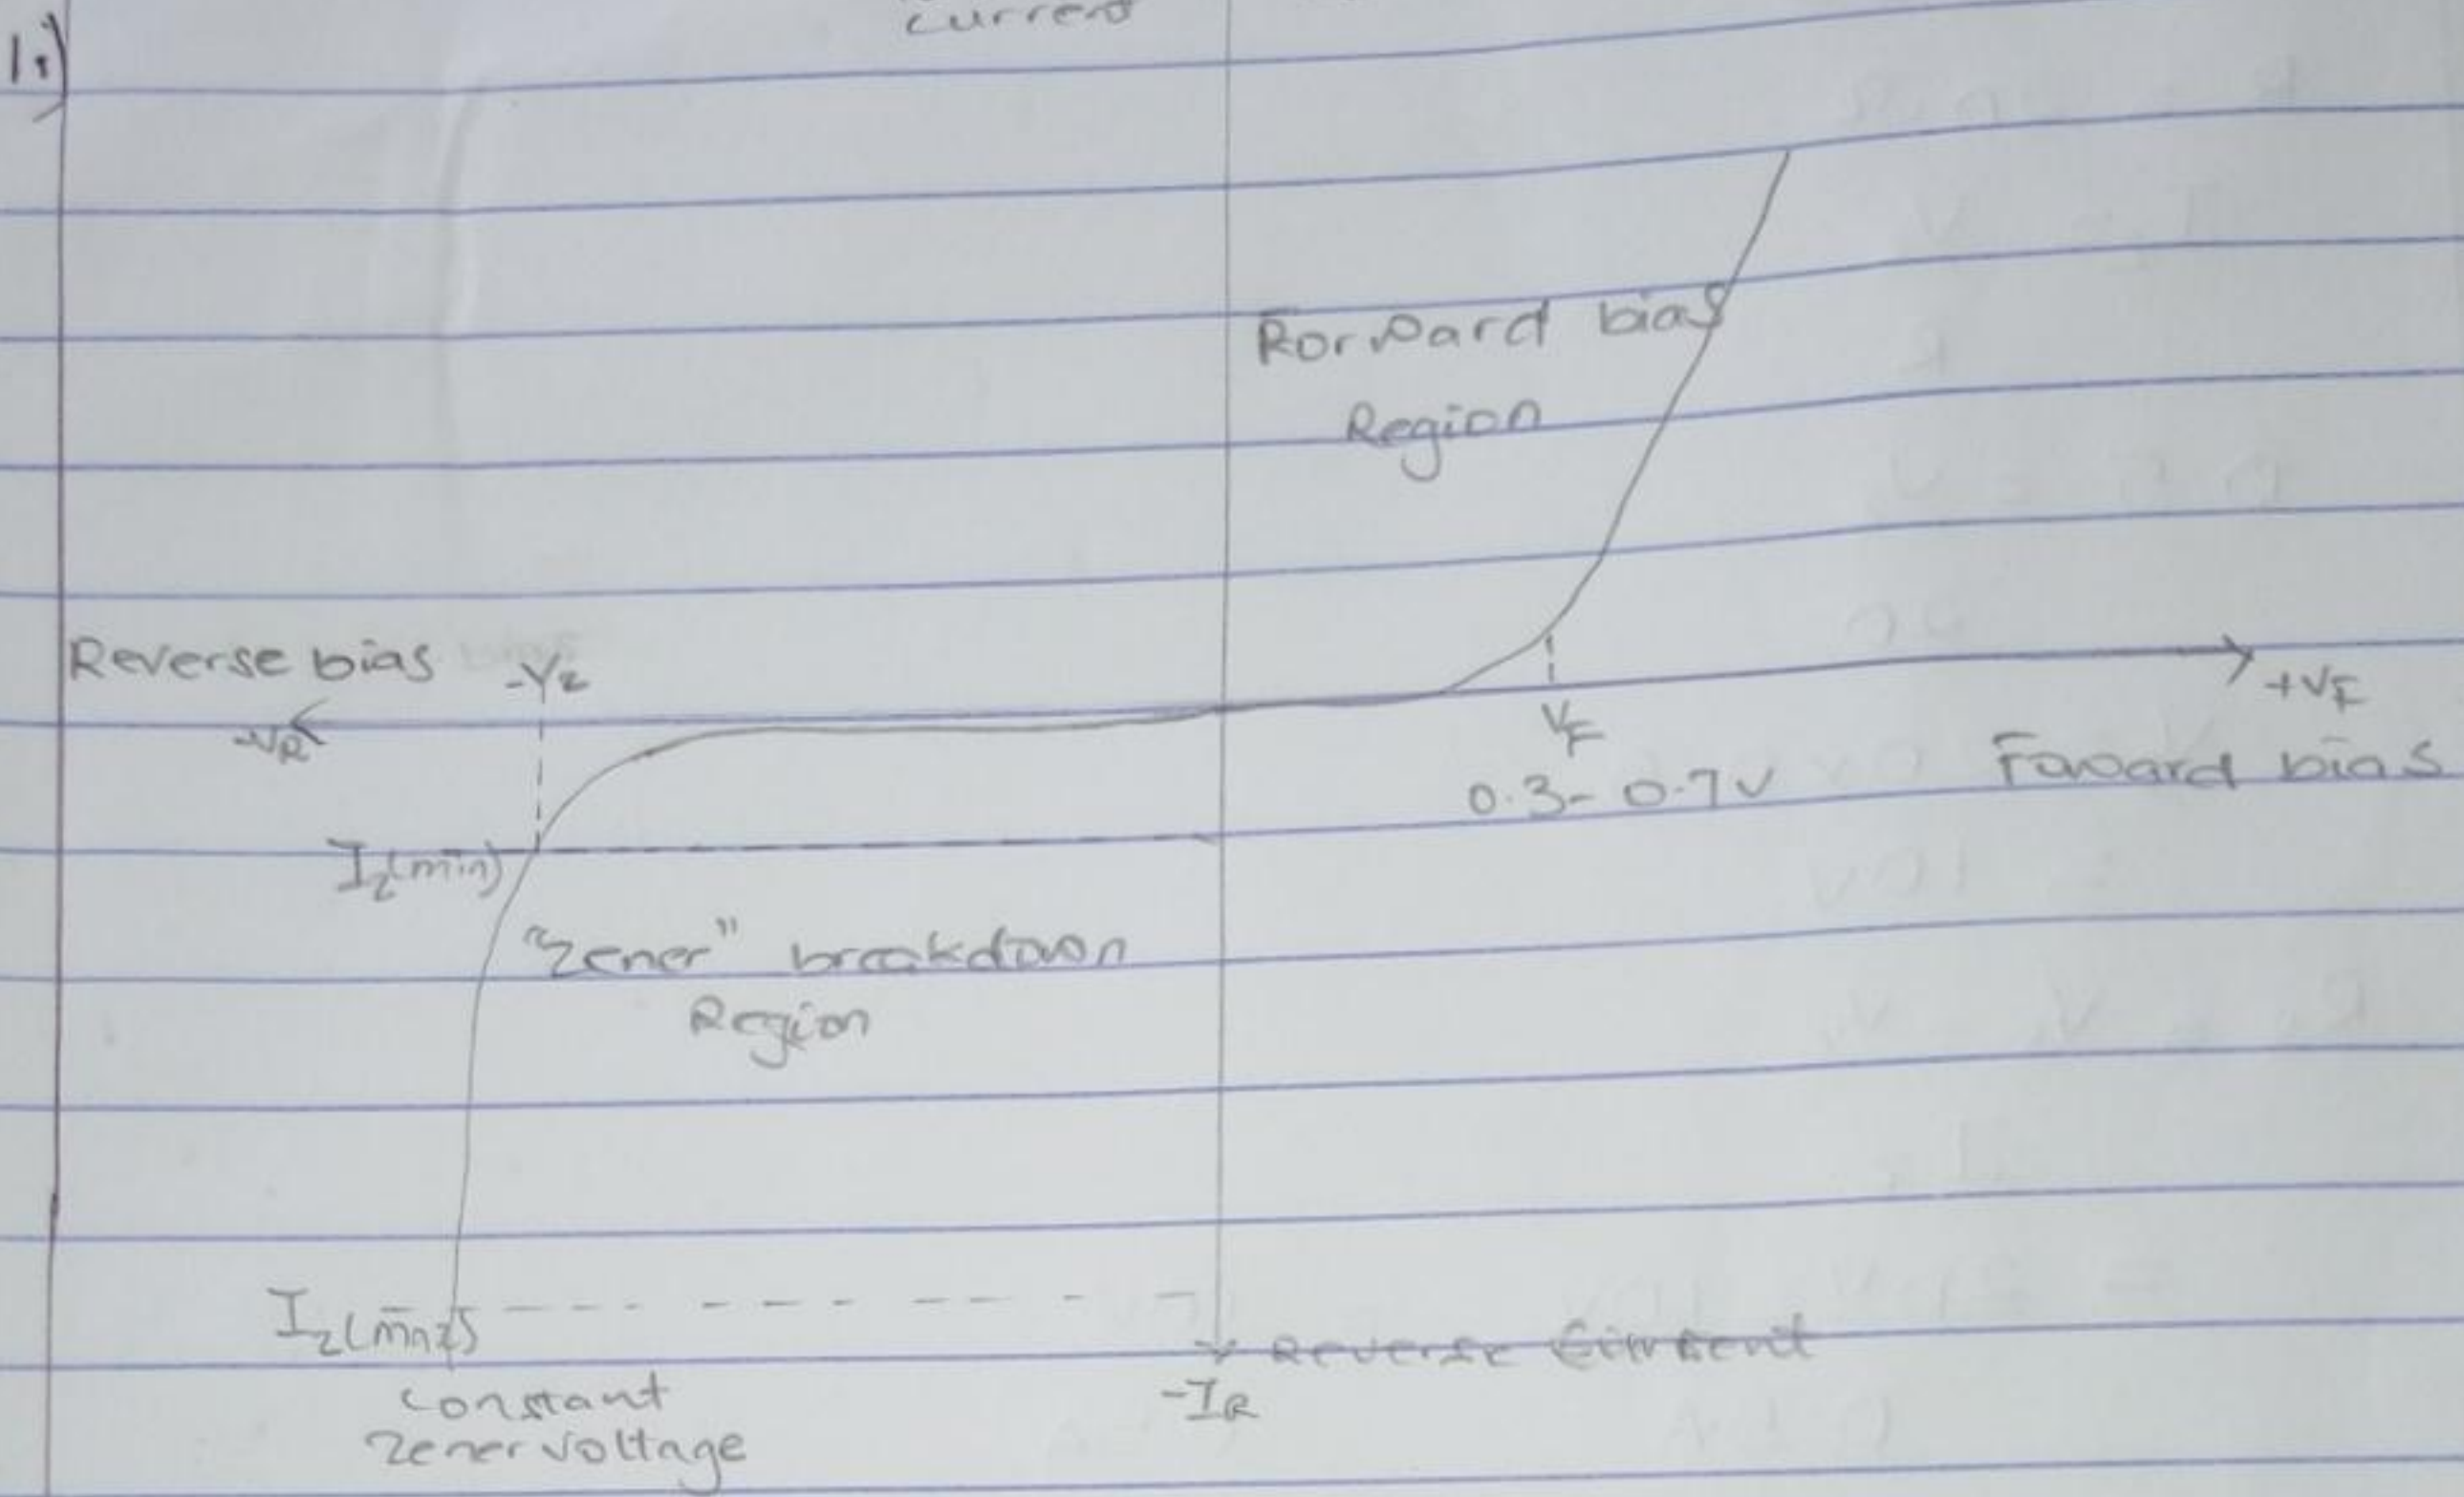 current
1.)
Rorward bias
Region
Reverse bias
-Vz
-VR
+VF
VF
0.3- 0.7V
Faward bias
Iz(min)
"Zener" breakdown
Region
Reverse Current
-IR
constant
Zener voltage